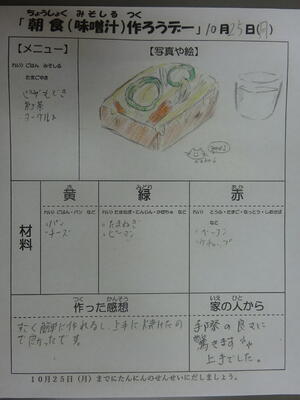 ちょうしょく みそしる つく
「朝食(味噌汁)作ろうデー」10月25日(月)
【メニュー】
れい)ごはん みそしる
たまごやき
ピザもどき
ヨーグルト
【写真や絵】
材料
き
黄
れい)ごはん・パン など
・パン
・チーズ
みどり
緑
れい)たまねぎ・にんじん・かぼちゃ など
・たまねぎ
・ピーマン
あか
赤
れい)とうふ・たまご・なっとう・しおさば など
・ベーコン
・ケチャップ
つく かんそう
作った感想
すごく簡単に作れるし、上手に
ので良かったです。
いえ ひと
家の人から
手際の良さに
驚きます
上手でした。
10月25日(月)までにたんにんのせんせいにだしましょう。